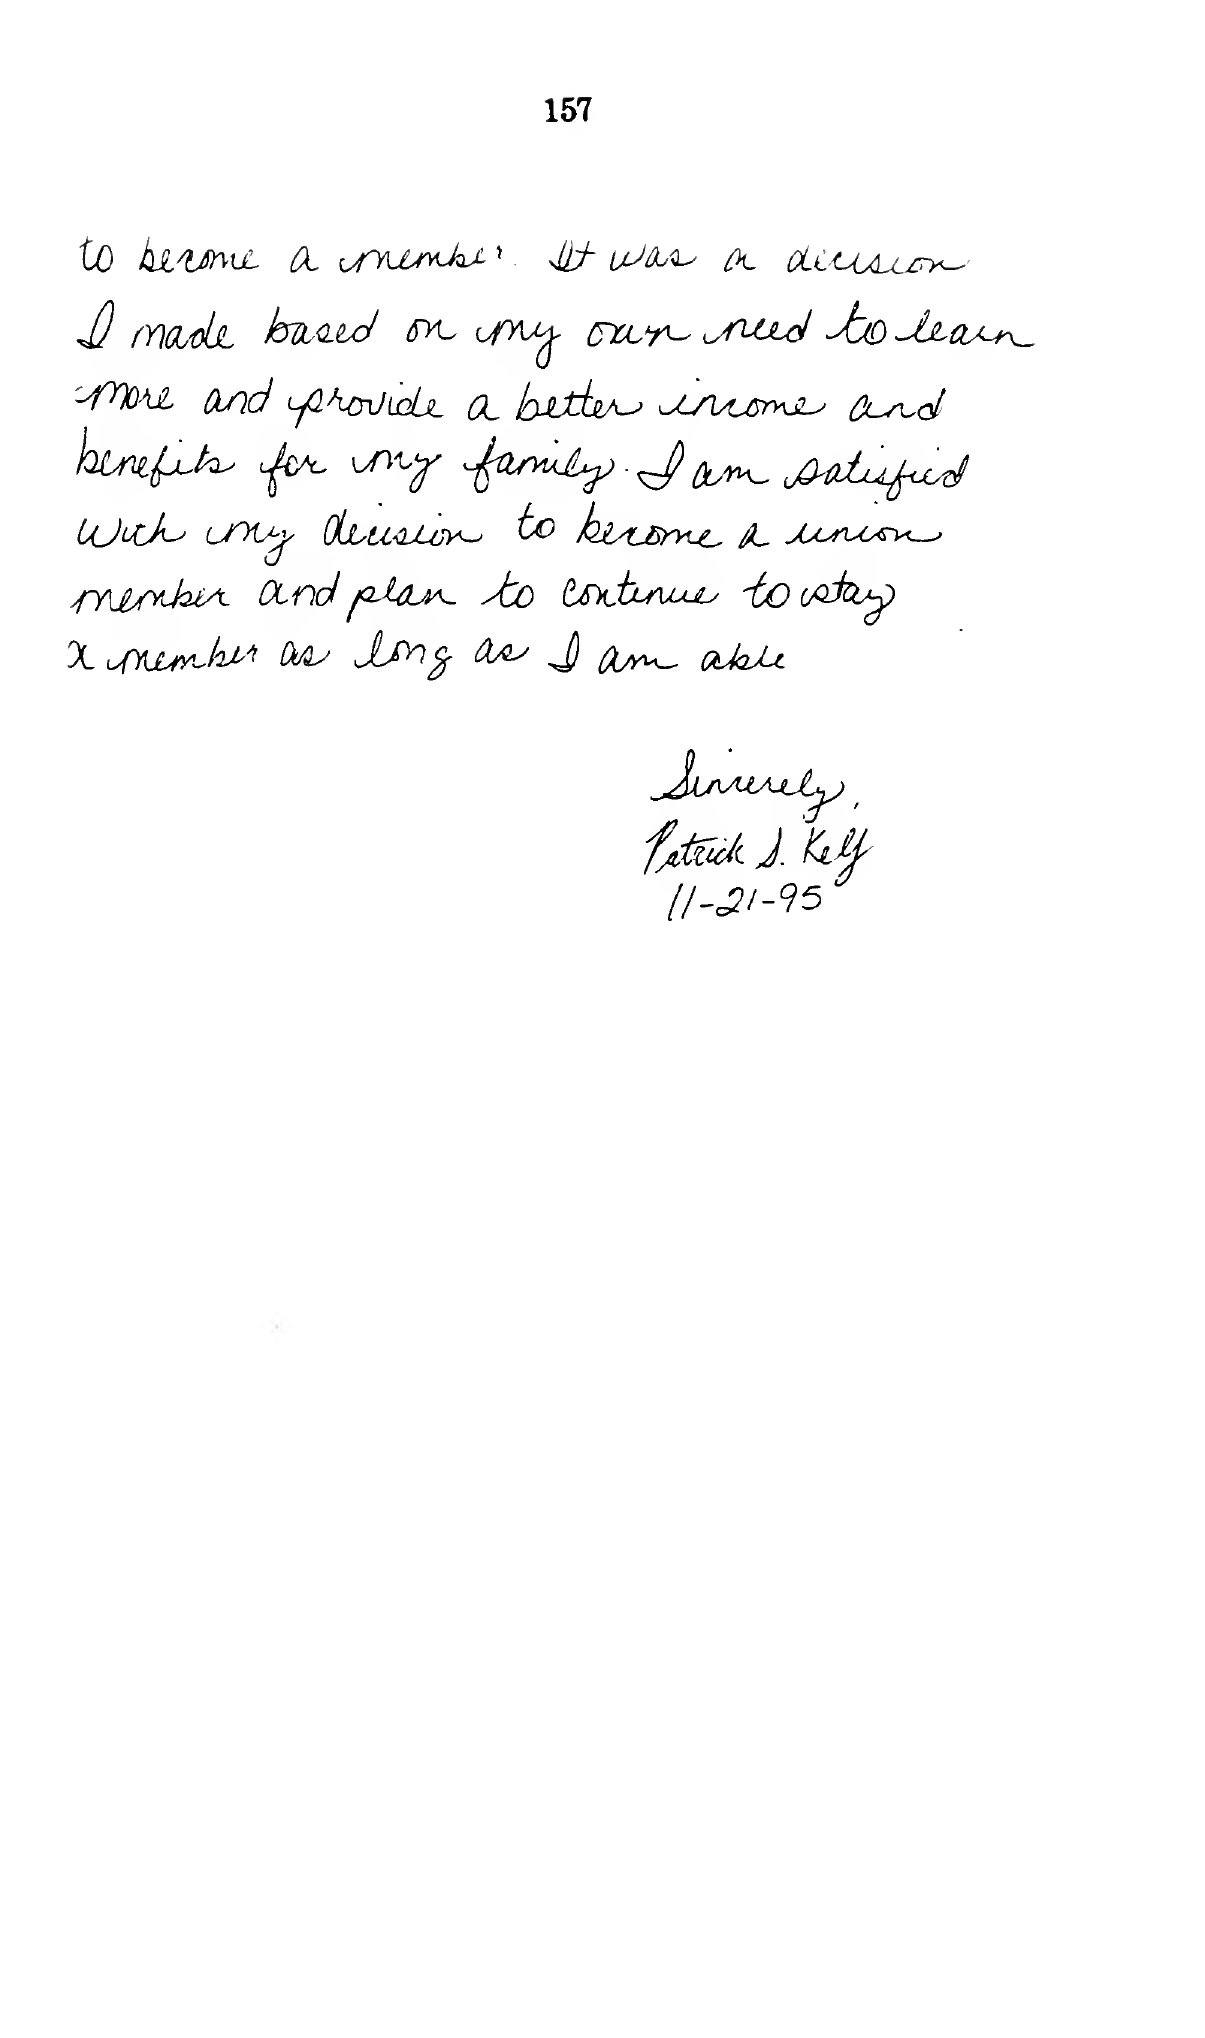 157
to become a member. It was a decision
I made based on my own need to learn
more and provide a better income and
benefits for my family. I am satisfied
with my decision to become a union
member and plan to continue to stay
a member as long as I am able
Sincerely,
Patrick S. Kelf
11-21-95